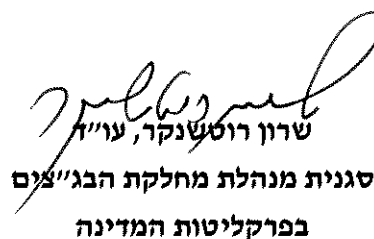 שרון רוטשנקר, עו״ד
סגנית מנהלת מחלקת הבג״צים
בפרקליטות המדינה